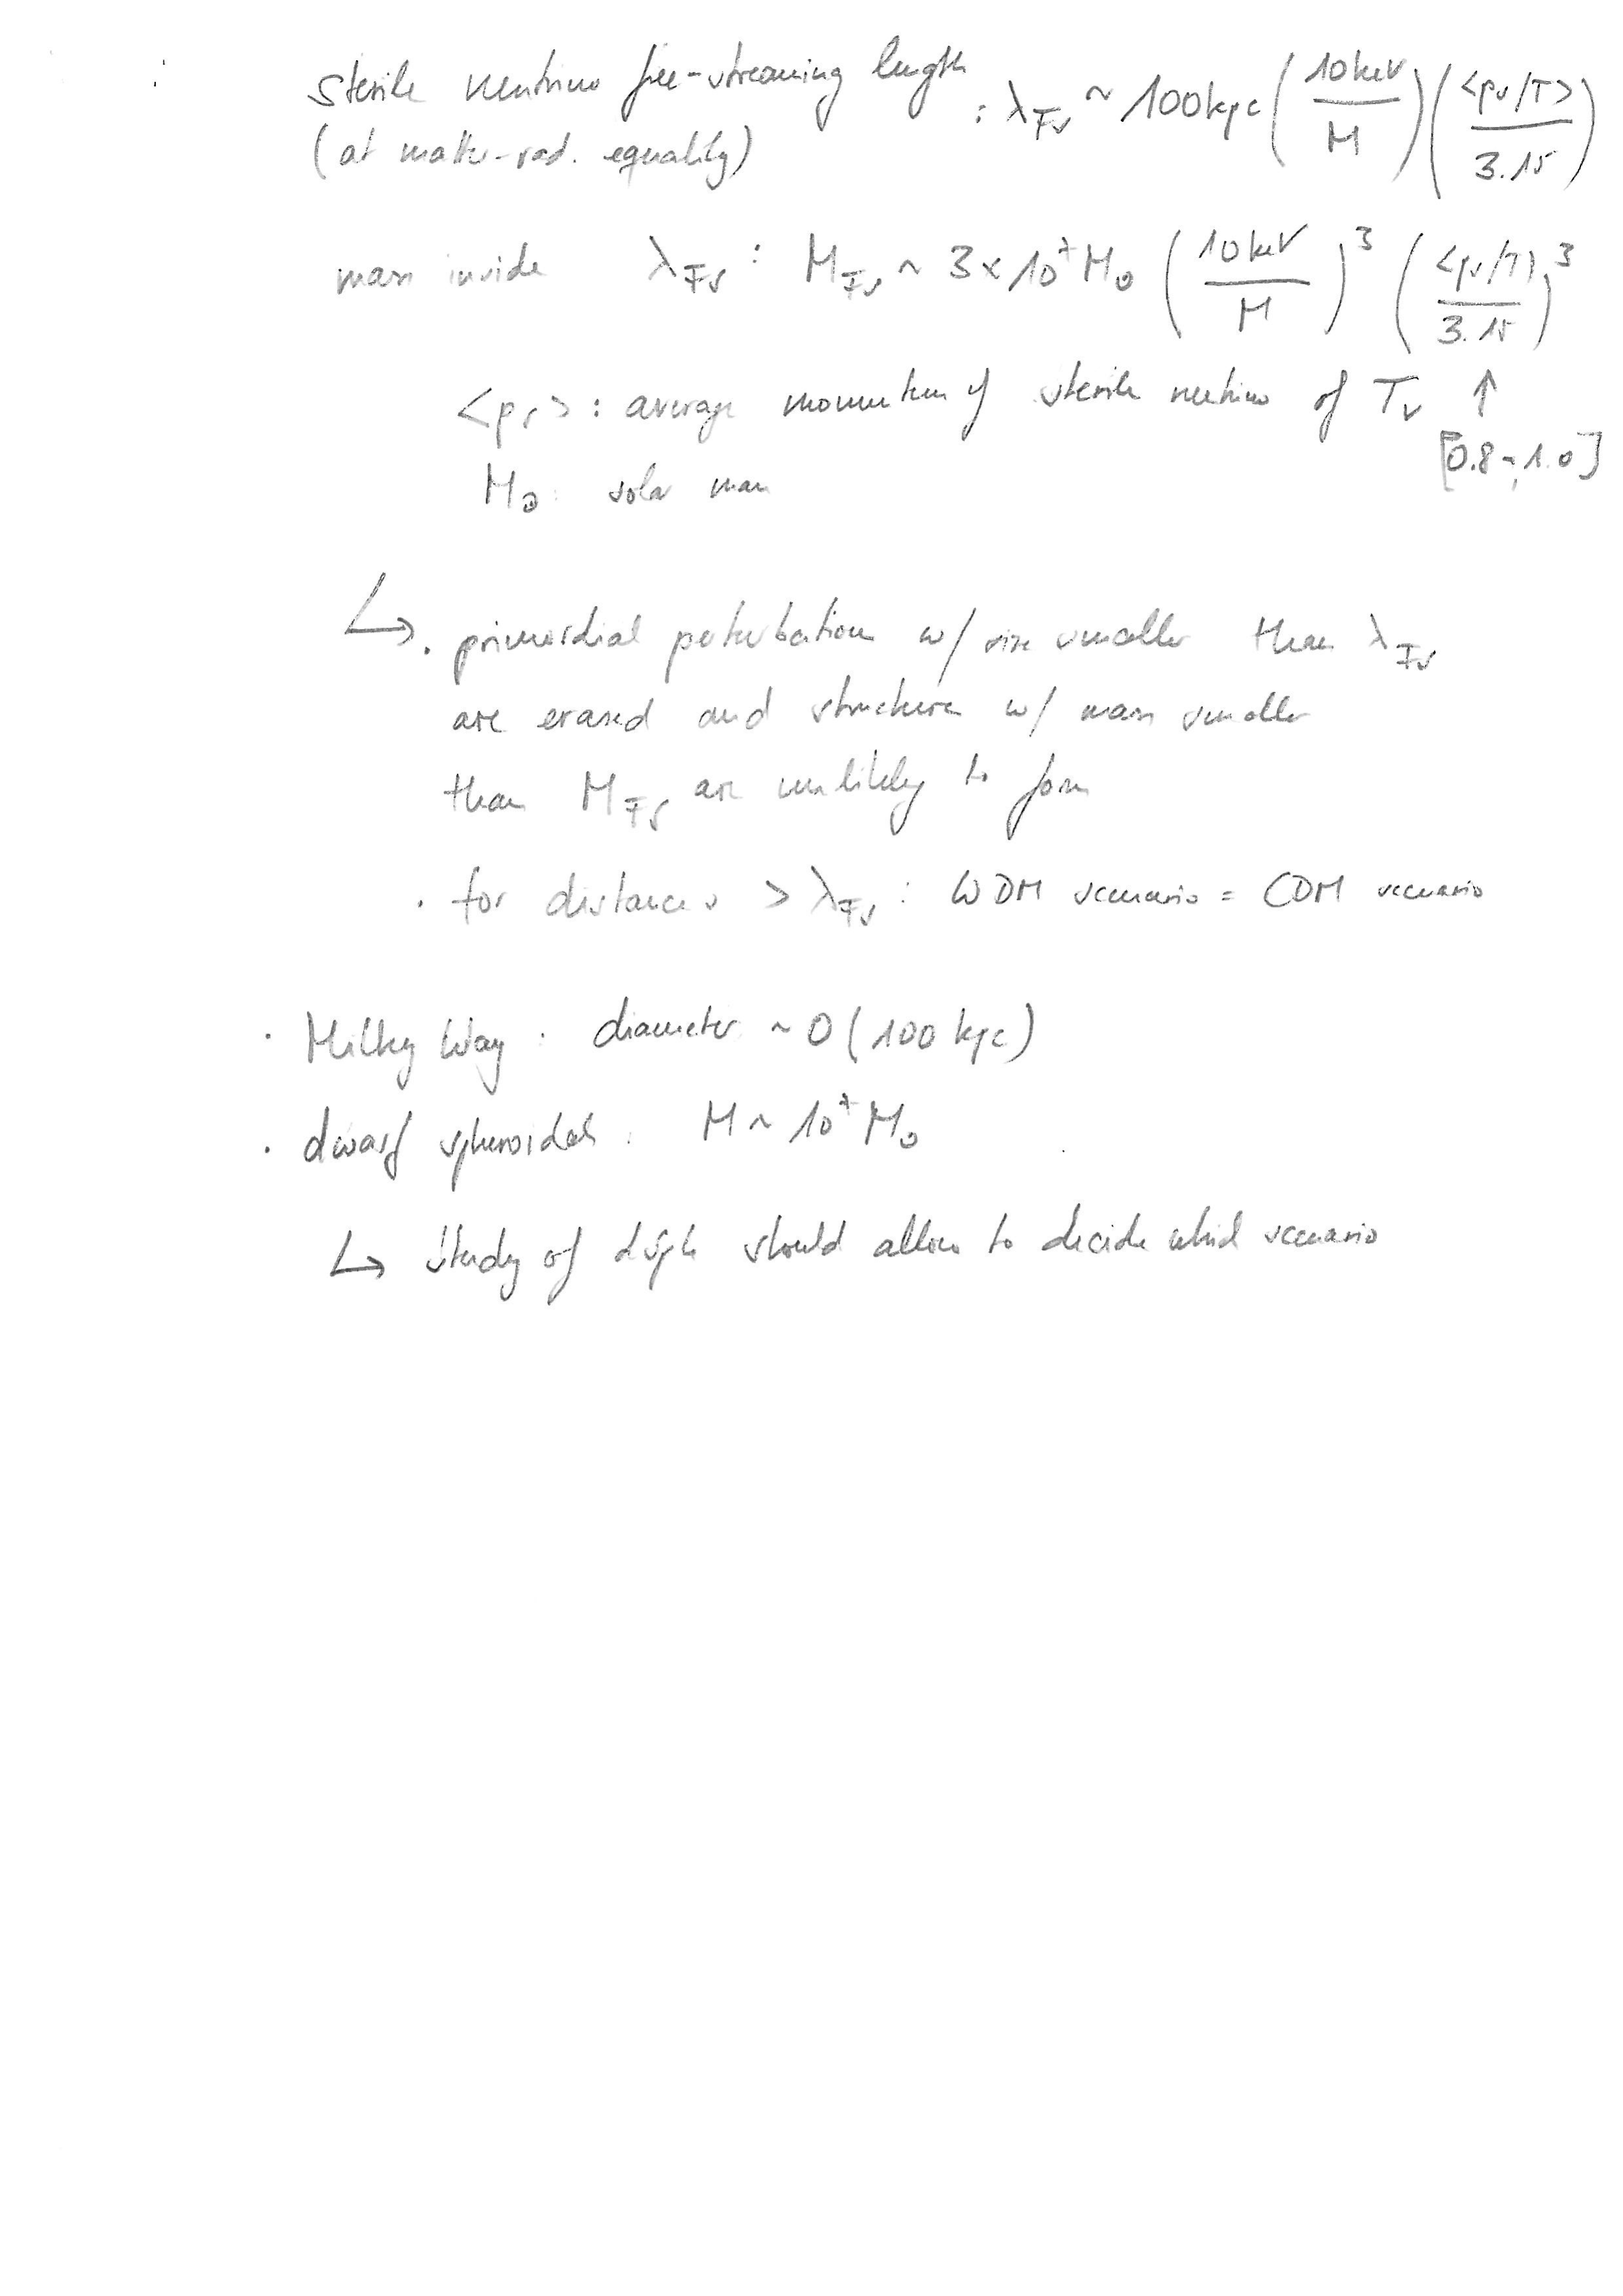 Sterile neutrino free-streaming length : λ_FS ~ 100 kpc (10 keV / M) (<p_s/T> / 3.15)
(at matter-rad. equality)
mass inside λ_FS : M_FS ~ 3 × 10^7 M_⊙ (10 keV / M)^3 (<p_s/T> / 3.15)^3
<p_s> : average momentum of sterile neutrino of T_ν ↑
[0.8 - 1.0]
M_⊙ : solar mass
↳ · primordial perturbation w/ size smaller than λ_FS
are erased and structure w/ mass smaller
than M_FS are unlikely to form
· for distances > λ_FS : WDM scenario = CDM scenario
· Milky Way : diameter ~ O(100 kpc)
· dwarf spheroidals : M ~ 10^7 M_⊙
↳ study of dSph should allow to decide which scenario